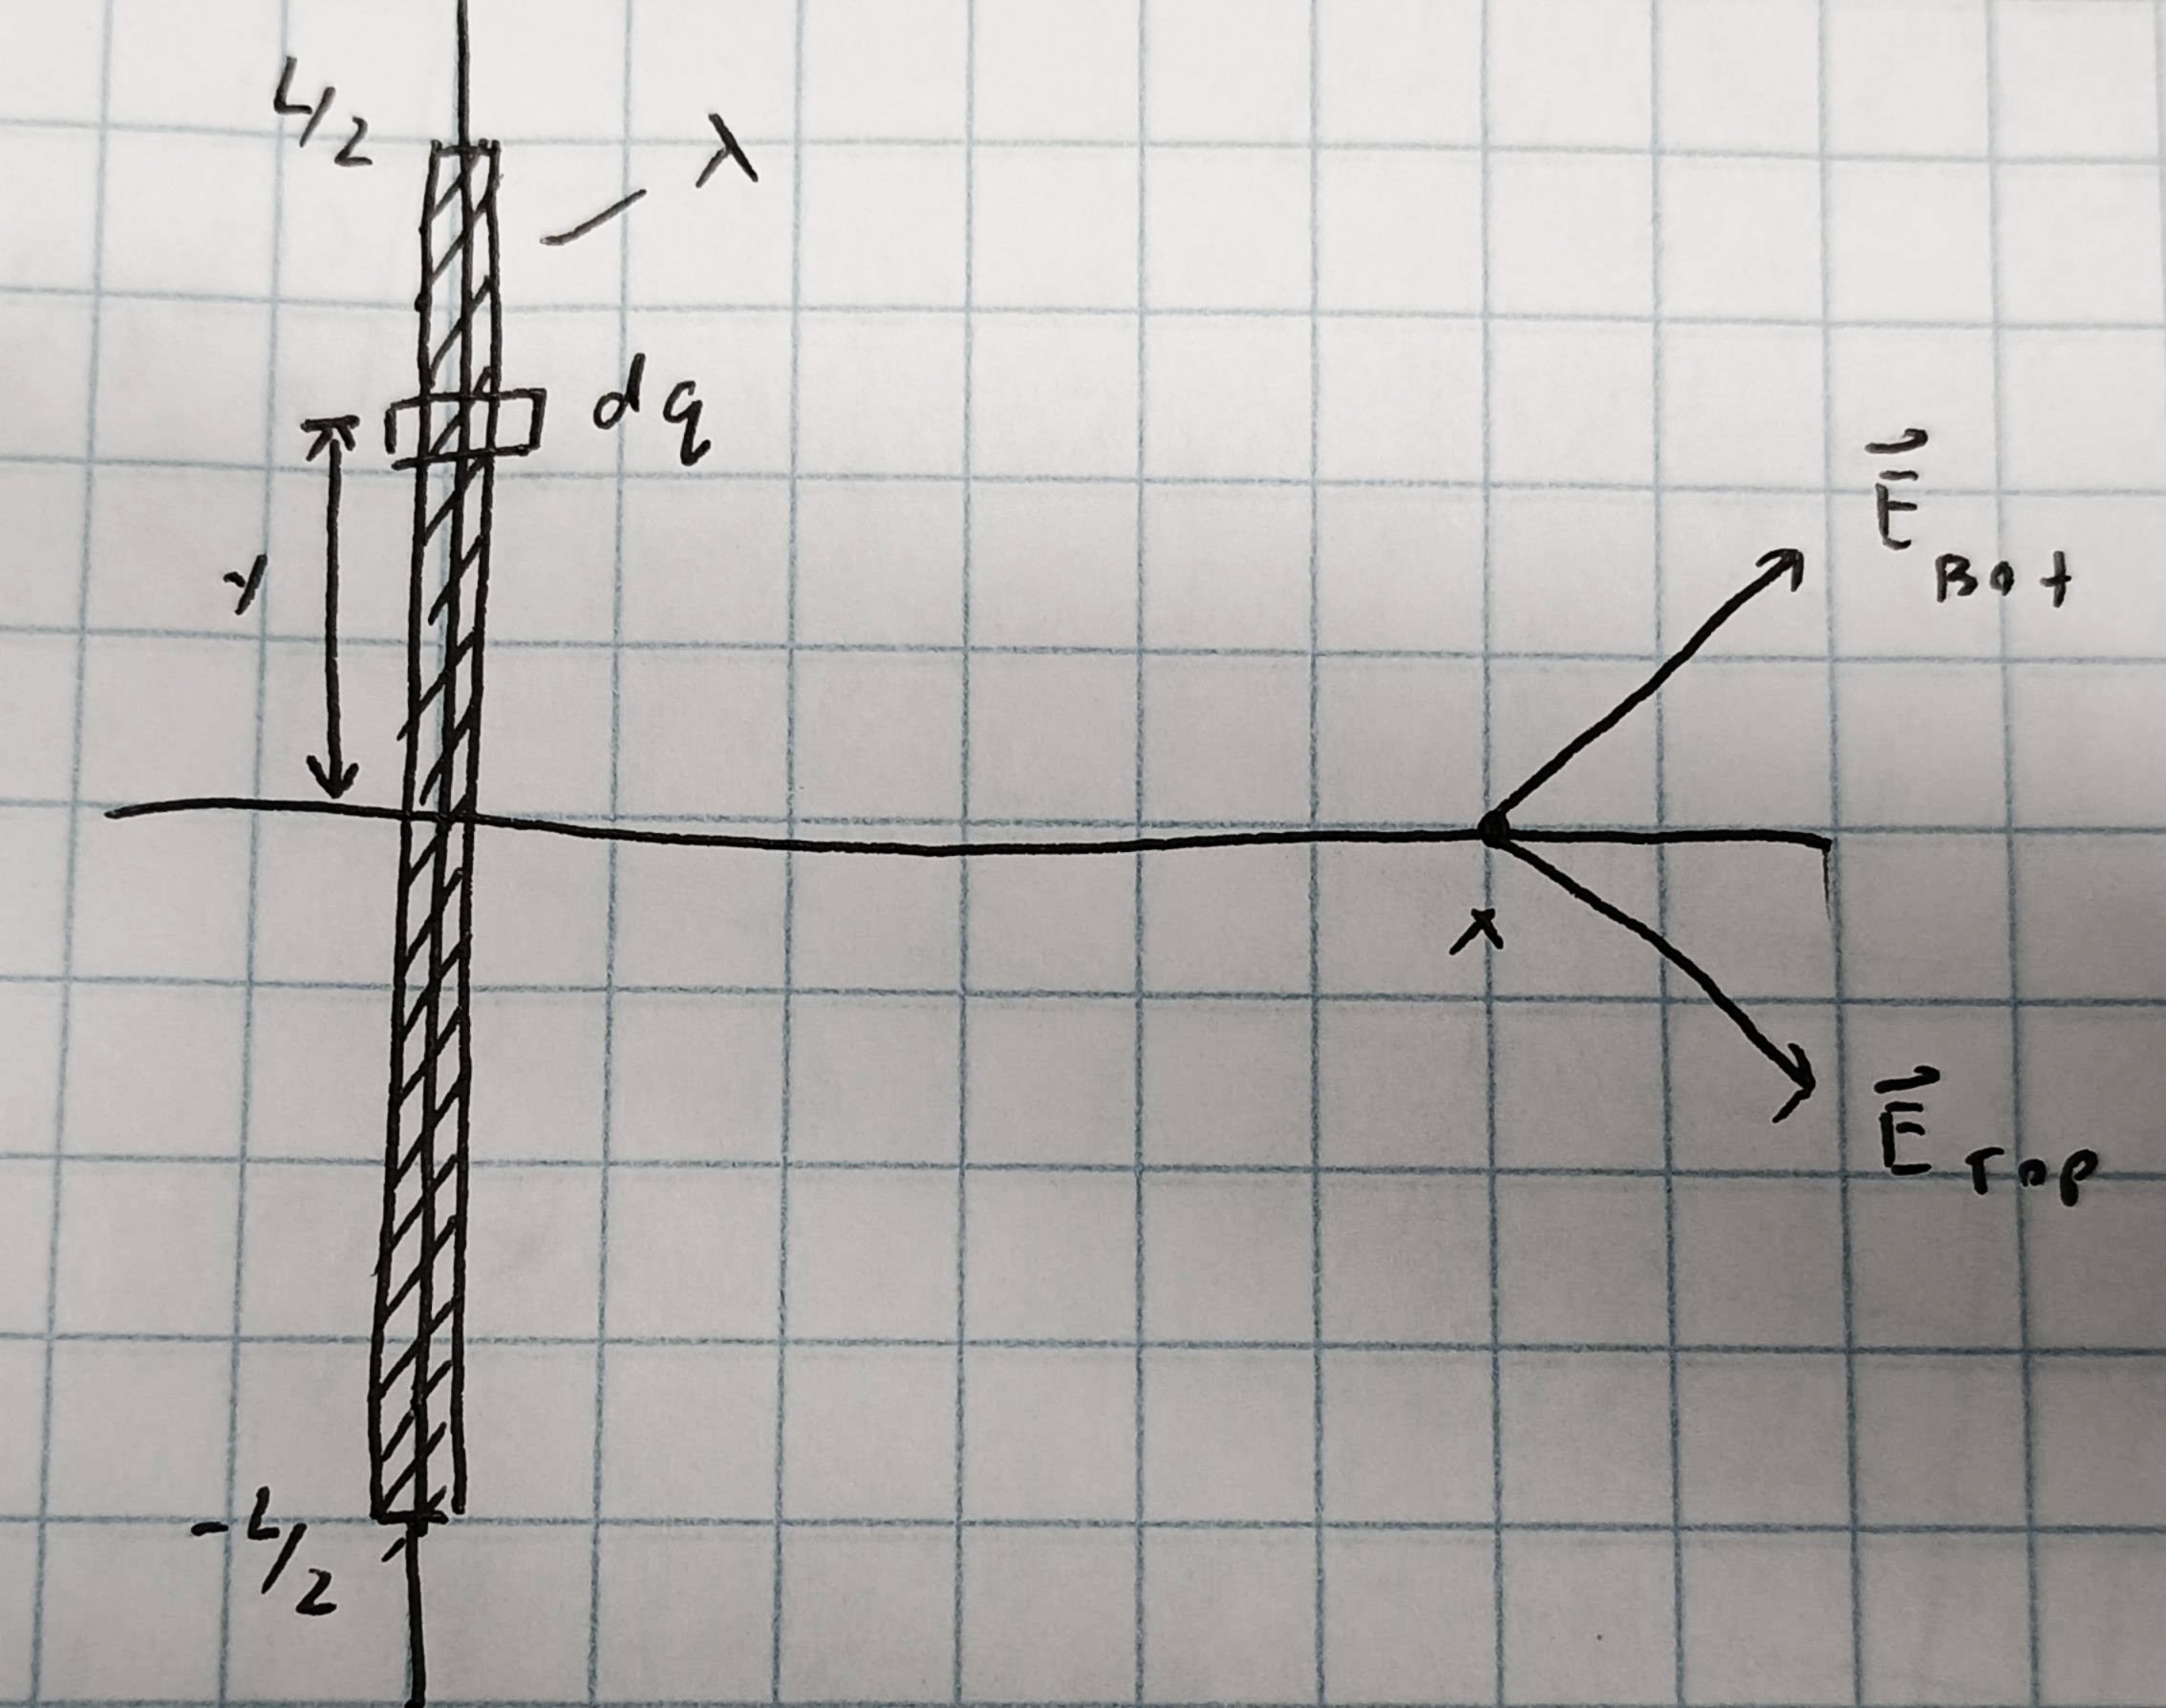 L/2
λ
dq
y
E⃗ Bot
x
E⃗ Top
-L/2